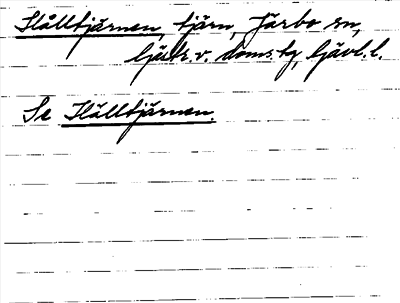 Hålltjärnen, tjärn, Järbo sn,
Gästr. v. doms.tg, Gävl. l.
Se Hålltjärnen.